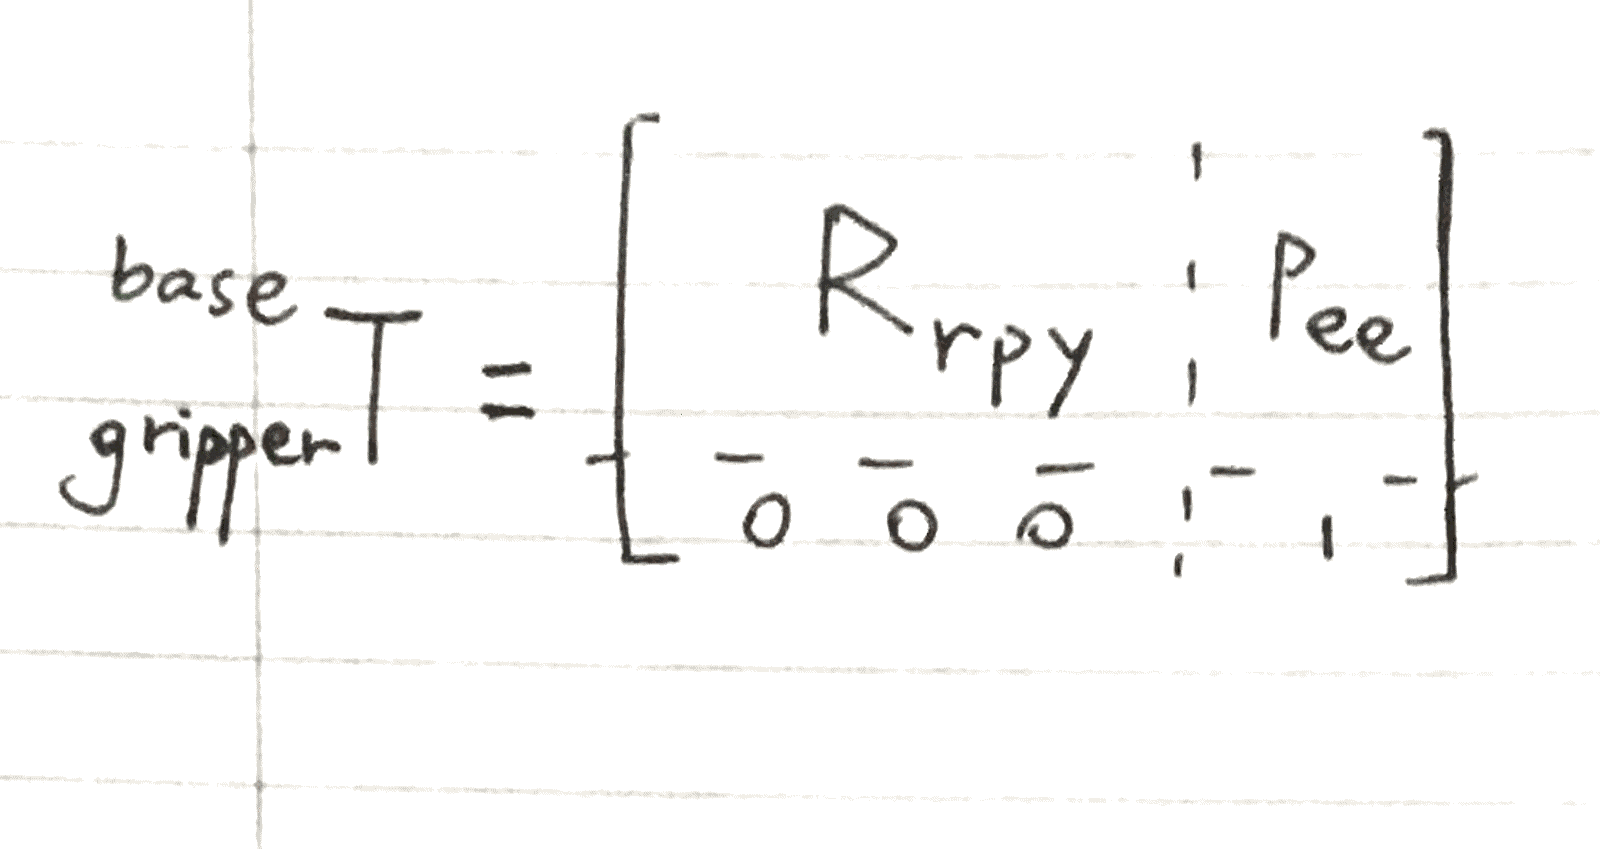 base
gripper T = [ R_rpy P_ee
0 0 0 1 ]